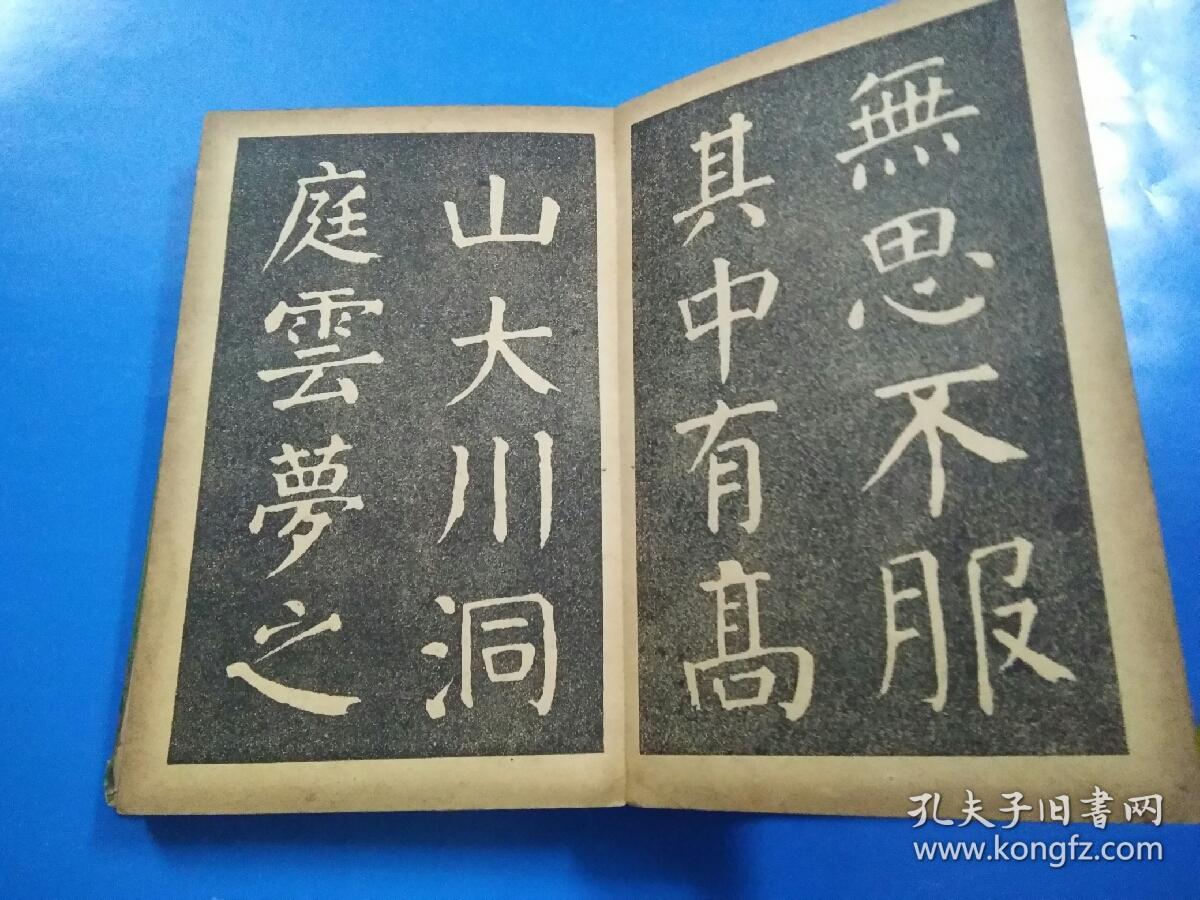 無思不服
其中有高
山大川洞
庭雲夢之
孔夫子旧书网
www.kongfz.com